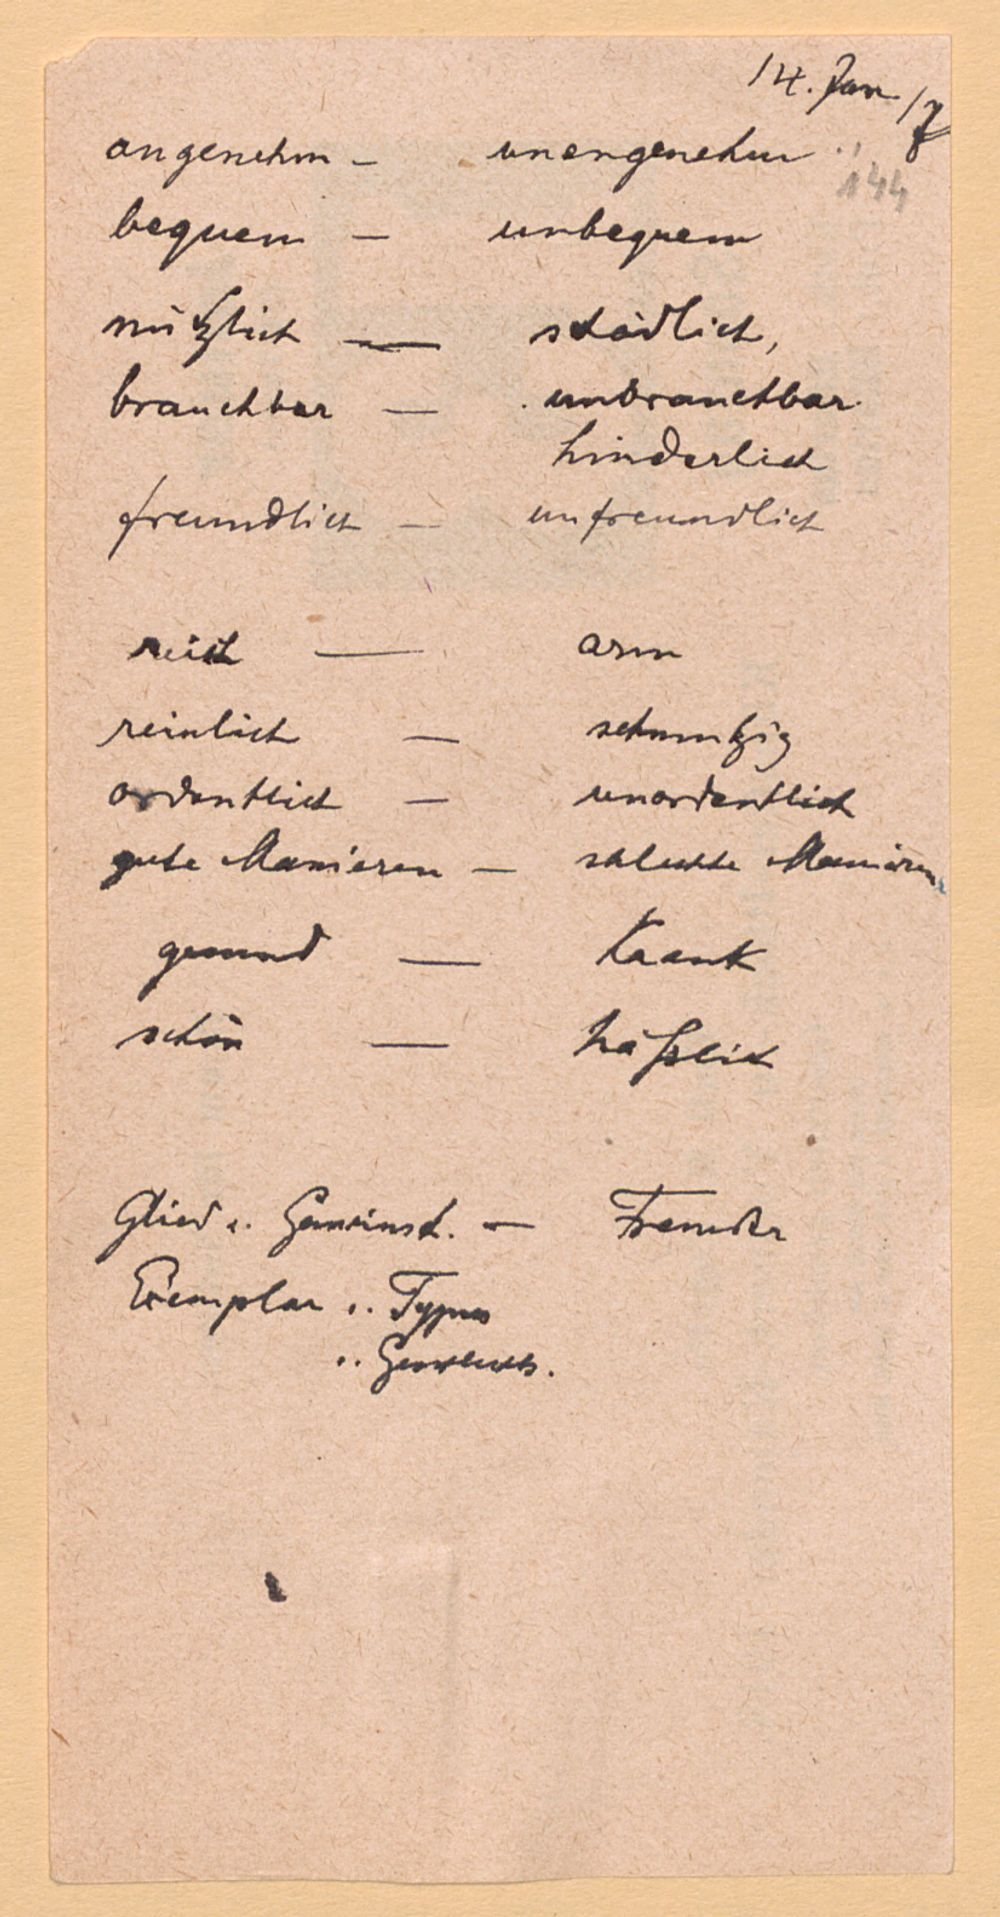 14. Jan. /7
angenehm – unangenehm
144
bequem – unbequem
nützlich — schädlich,
brauchbar – unbrauchbar
hinderlich
freundlich – unfreundlich
reich — arm
reinlich – schmutzig
ordentlich – unordentlich
gute Manieren – schlechte Manieren
gesund — krank
schön — häßlich
Glied e. Gemeinsch. – Fremder
Exemplar e. Typus